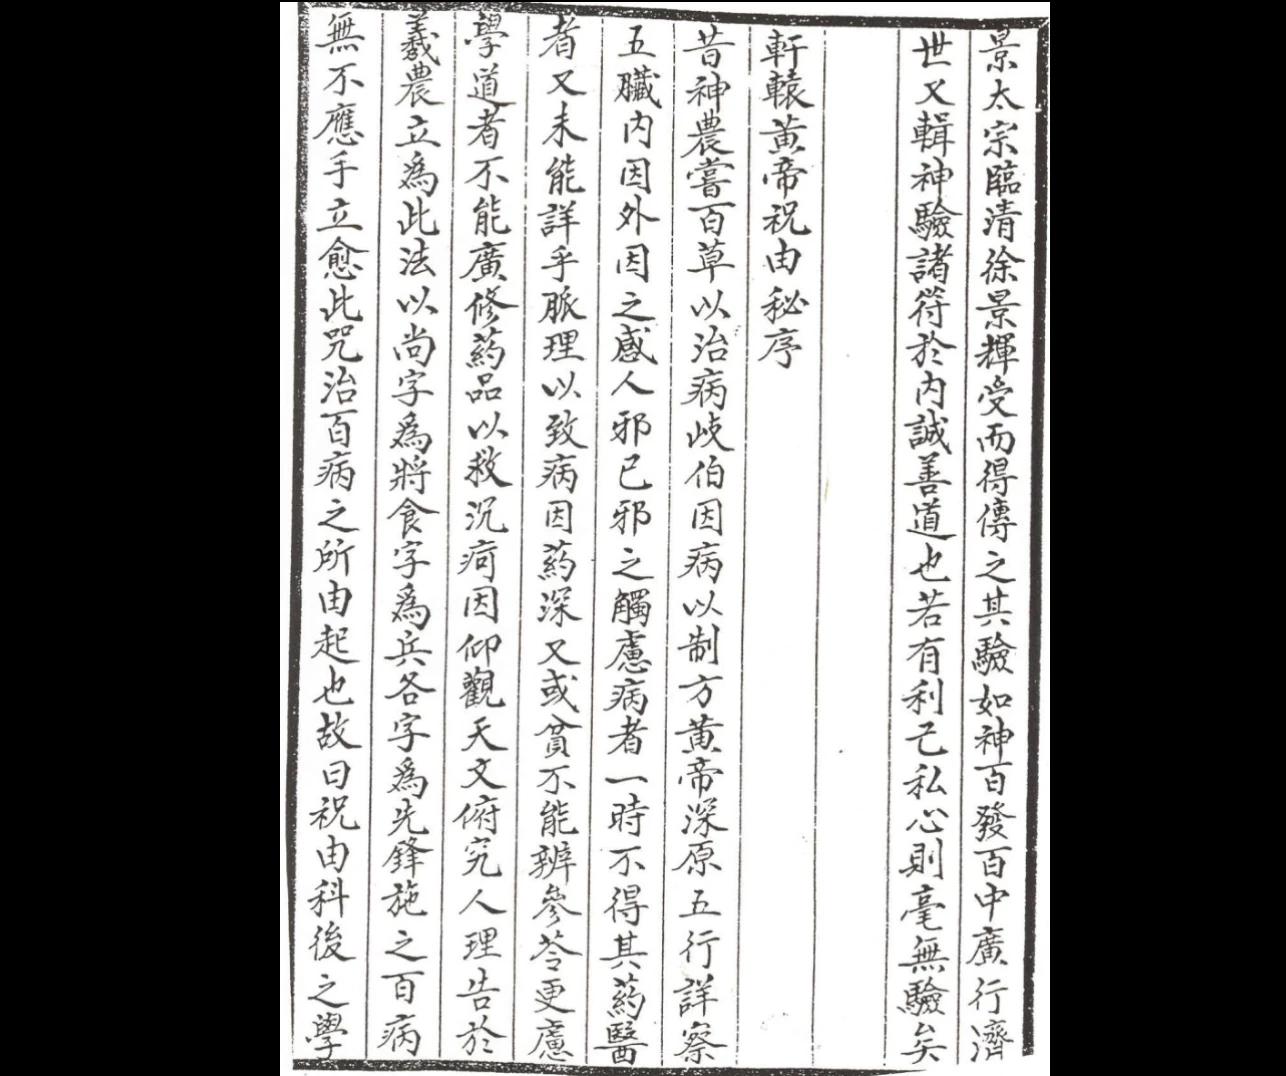 景太宗臨清徐景輝受而得傳之其驗如神百發百中廣行濟
世又輯神驗諸符於內誠善道也若有利己私心則毫無驗矣
軒轅黃帝祝由秘序
昔神農嘗百草以治病岐伯因病以制方黃帝深原五行詳察
五臟內因外因之感人邪已邪之觸慮病者一時不得其葯醫
者又未能詳乎脈理以致病因葯深又或貧不能辨參苓更慮
學道者不能廣修葯品以救沉疴因仰觀天文俯究人理告於
羲農立為此法以尚字為將食字為兵各字為先鋒施之百病
無不應手立愈此咒治百病之所由起也故曰祝由科後之學